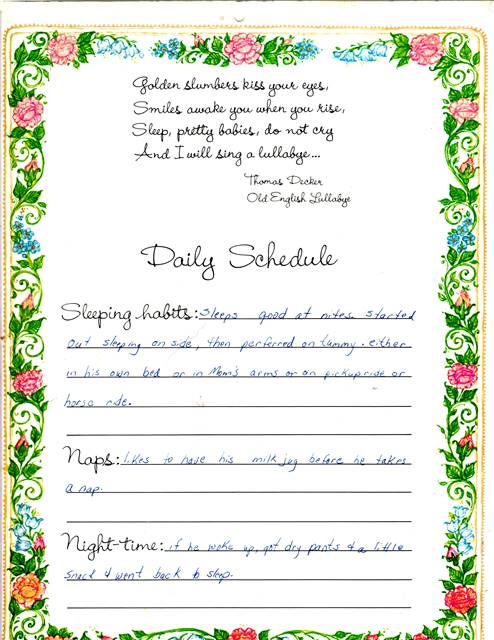 Golden slumbers kiss your eyes,
Smiles awake you when you rise,
Sleep, pretty babies, do not cry
And I will sing a lullabye...
Thomas Decker
Old English Lullabye
Daily Schedule
Sleeping habits: Sleeps good at nites. started
out sleeping on side, then perferred on tummy. either
in his own bed or in Mom's arms or on pickup ride or
horse ride.
Naps: likes to have his milk jug before he takes
a nap.
Night-time: if he woke up, got dry pants & a little
snack & went back to sleep.